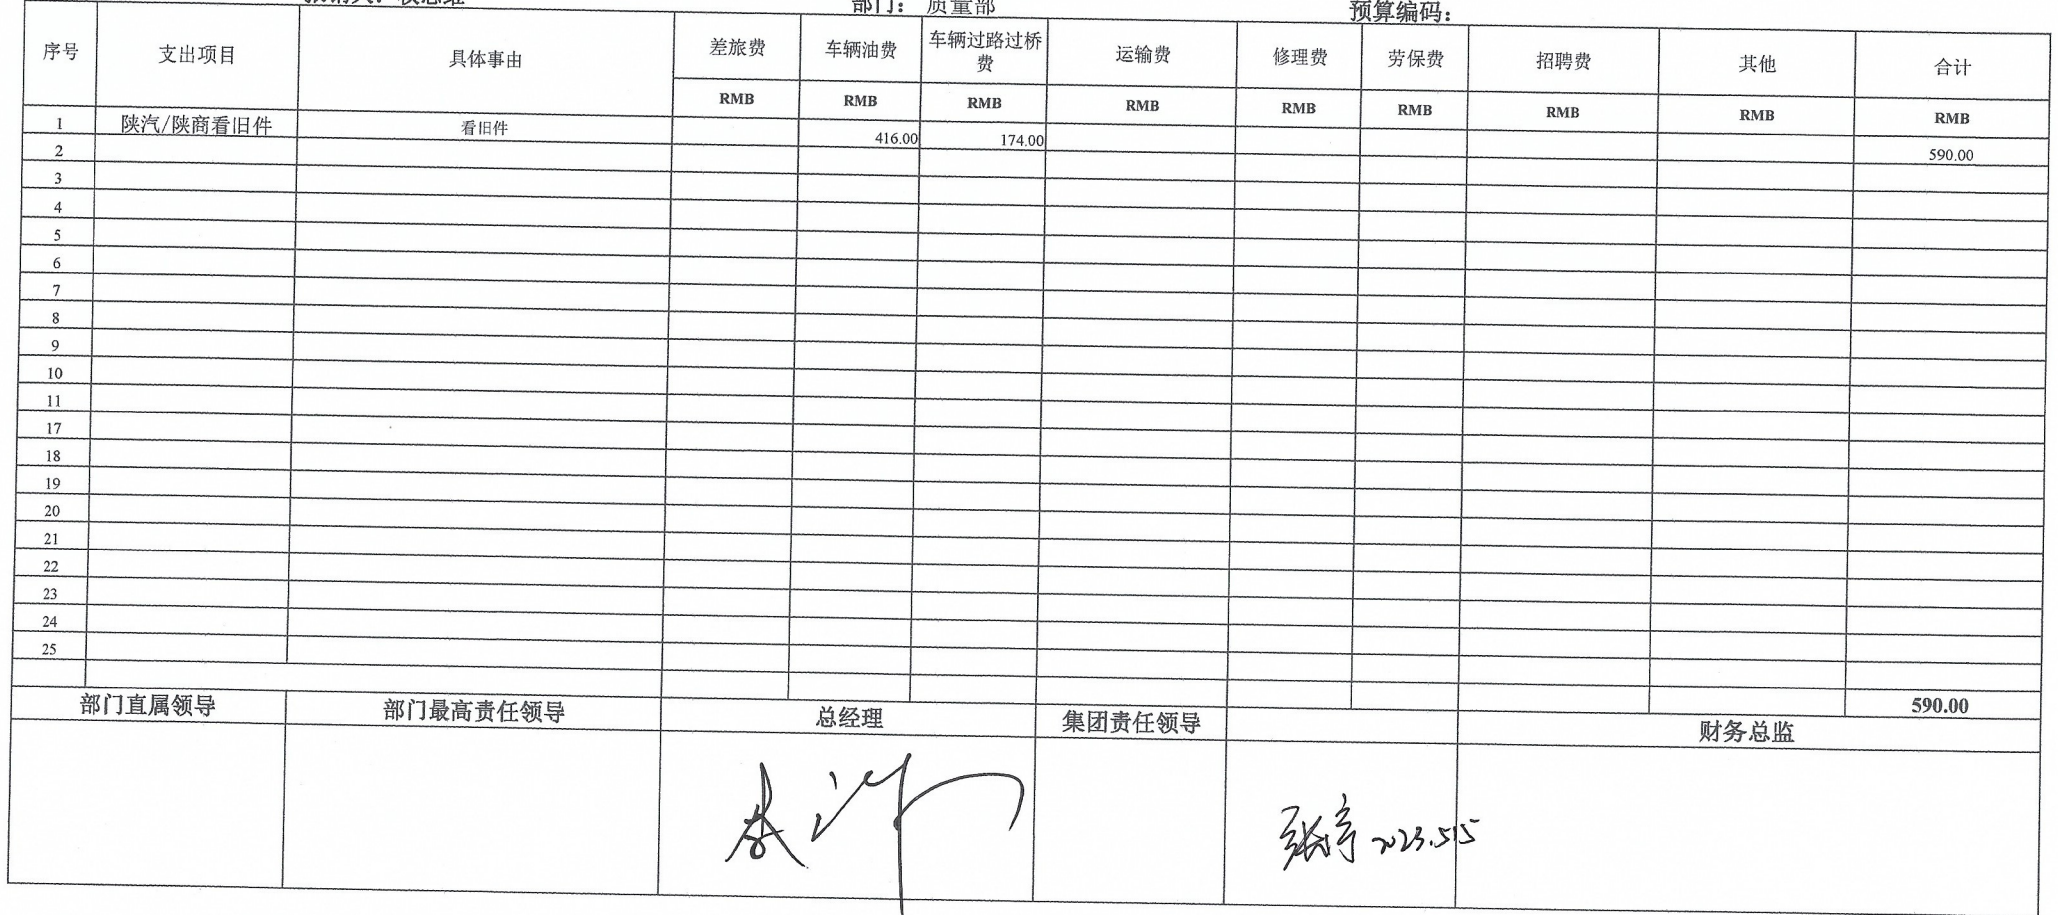 部门： 质量部 预算编码：
序号 支出项目 具体事由 差旅费 车辆油费 车辆过路过桥费 运输费 修理费 劳保费 招聘费 其他 合计
RMB RMB RMB RMB RMB RMB RMB RMB RMB
1 陕汽/陕商看旧件 看旧件 416.00 174.00 590.00
2
3
4
5
6
7
8
9
10
11
17
18
19
20
21
22
23
24
25
590.00
部门直属领导 部门最高责任领导 总经理 集团责任领导 财务总监
2023.5.15